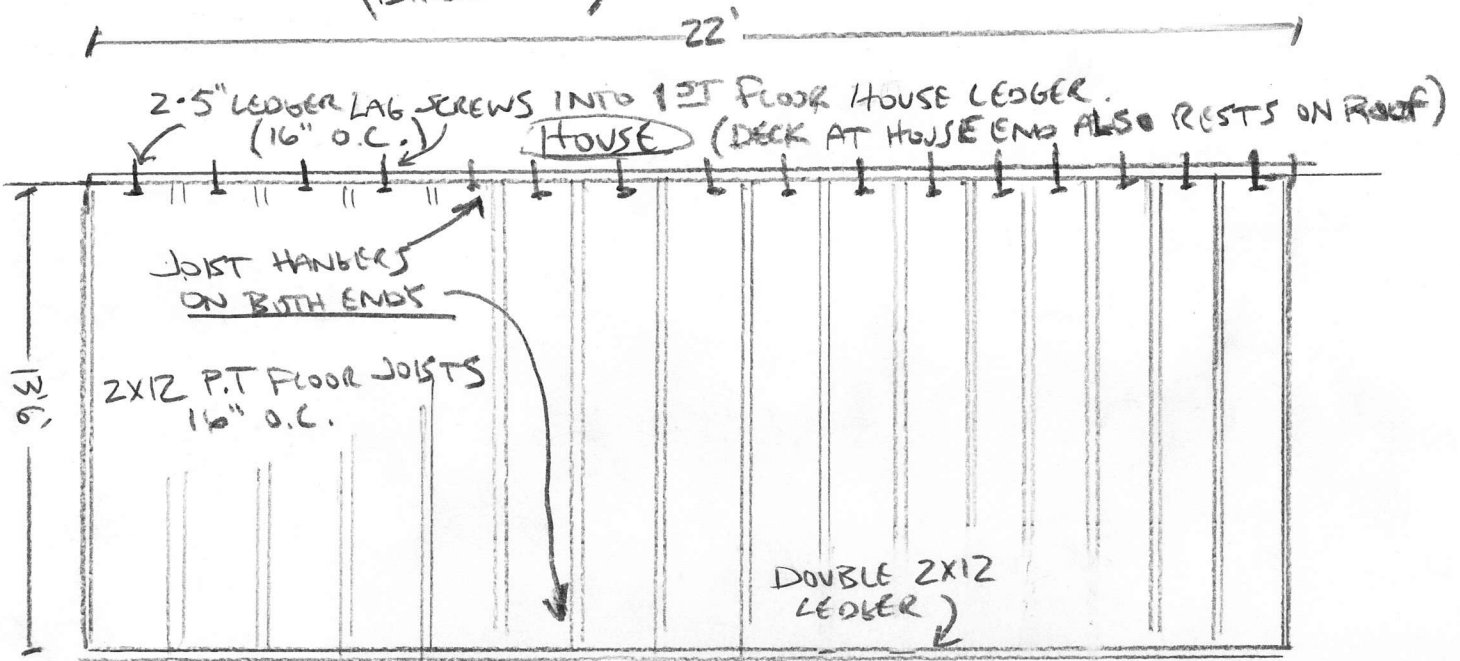 22'
2.5" LEDGER LAG SCREWS INTO 1ST FLOOR HOUSE LEDGER.
(16" O.C.) HOUSE (DECK AT HOUSE END ALSO RESTS ON ROOF)
JOIST HANGERS
ON BOTH ENDS
13'6"
2X12 P.T FLOOR JOISTS
16" O.C.
DOUBLE 2X12
LEDGER